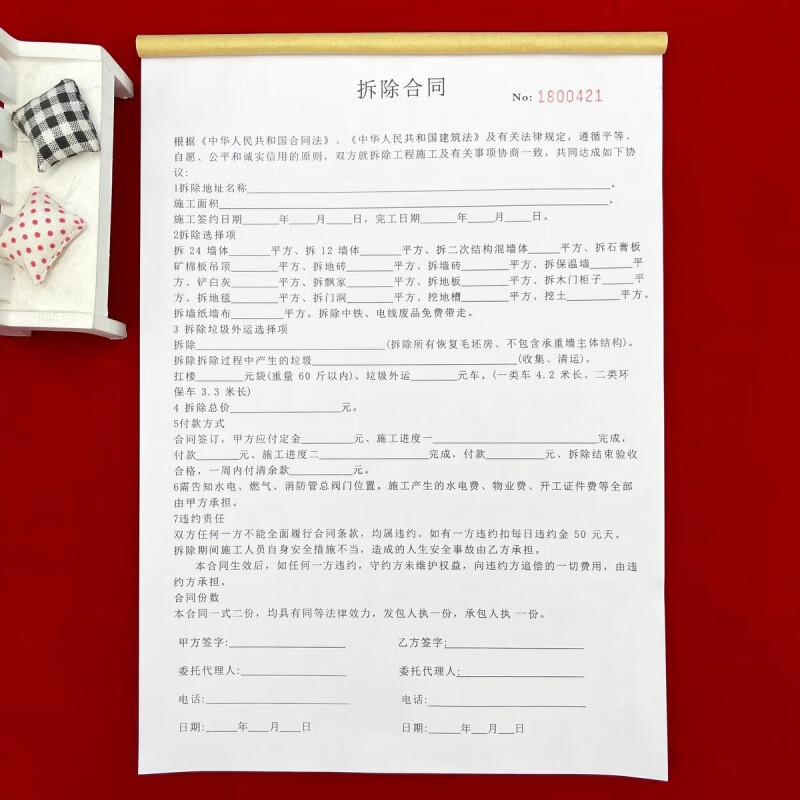 拆除合同
No: 1800421
根据《中华人民共和国合同法》、《中华人民共和国建筑法》及有关法律规定，遵循平等、
自愿、公平和诚实信用的原则，双方就拆除工程施工及有关事项协商一致，共同达成如下协
议:
1拆除地址名称____________________。
施工面积____________________。
施工签约日期____年____月____日，完工日期____年____月____日。
2拆除选择项
拆 24 墙体____平方、拆 12 墙体____平方、拆二次结构混墙体____平方、拆石膏板
矿棉板吊顶____平方、拆地砖____平方、拆墙砖____平方、拆保温墙____平
方、铲白灰____平方、拆飘家____平方、拆地板____平方、拆木门柜子____平
方、拆地毯____平方、拆门洞____平方、挖地槽____平方、挖土____平方。
拆墙纸墙布____平方。拆除中铁、电线废品免费带走。
3 拆除垃圾外运选择项
拆除____________________(拆除所有恢复毛坯房、不包含承重墙主体结构)。
拆除拆除过程中产生的垃圾____________________(收集、清运)。
扛楼____元袋(重量 60 斤以内)、垃圾外运____元车。(一类车 4.2 米长、二类环
保车 3.3 米长)
4 拆除总价__________元。
5付款方式
合同签订，甲方应付定金____元、施工进度一__________完成，
付款____元、施工进度二__________完成，付款____元、拆除结束验收
合格，一周内付清余款____元。
6需告知水电、燃气、消防管总阀门位置。施工产生的水电费、物业费、开工证件费等全部
由甲方承担。
7违约责任
双方任何一方不能全面履行合同条款，均属违约。如有一方违约扣每日违约金 50 元天。
拆除期间施工人员自身安全措施不当，造成的人生安全事故由乙方承担。
本合同生效后，如任何一方违约，守约方未维护权益，向违约方追偿的一切费用，由违
约方承担。
合同份数
本合同一式二份，均具有同等法律效力，发包人执一份，承包人执 一份。
甲方签字:__________ 乙方签字:__________
委托代理人:__________ 委托代理人:__________
电话:__________ 电话:__________
日期:____年____月____日 日期:____年____月____日